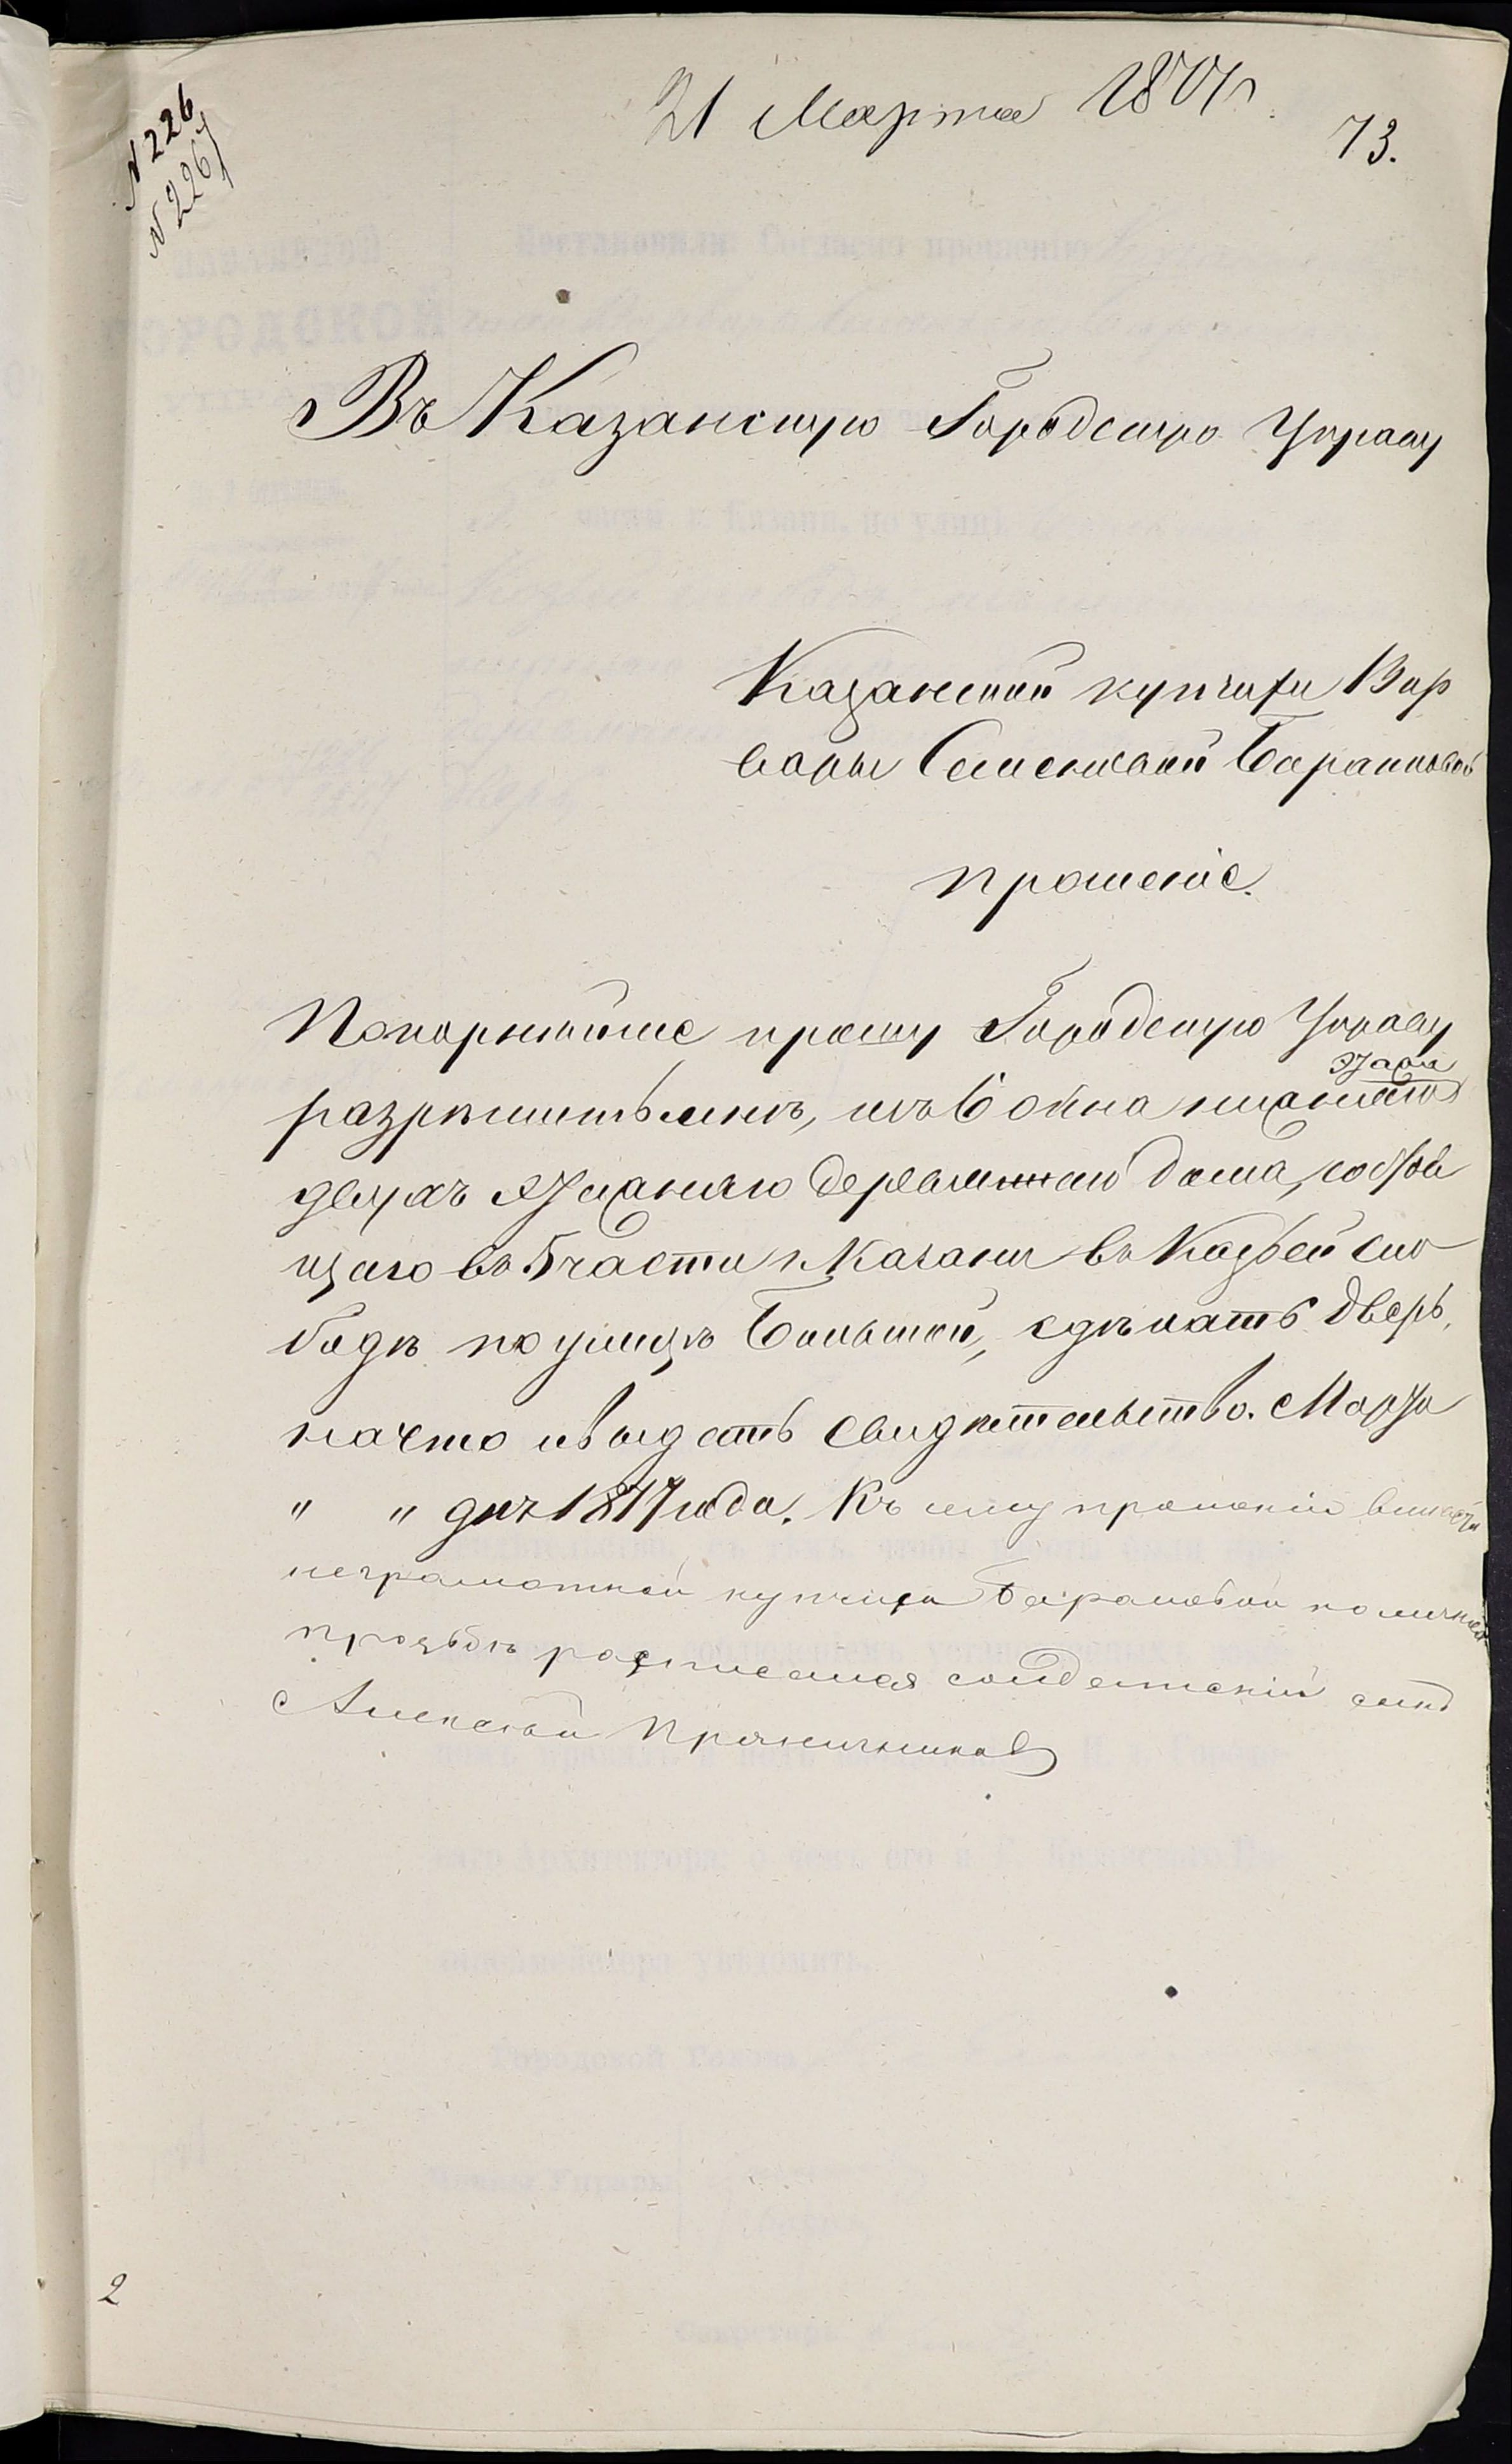 21 Марта 1877 г.
73.
N 226
N 2267
Въ Казанскую Городскую Управу
Казанской купчихи Вар
вары Семеновой Барановой
прошеніе.
Покорнейше прошу Городскую Управу
этажа
разрешить мне, изъ 6 окна нижняго
двухъ этажнаго деревяннаго дома, состоя
щаго въ 5 части г. Казани въ Козьей сло
боде по улице Большой, сделать дверь,
на что и выдать свидетельство. Марта
" " дня 1877 года. Къ сему прошенію вместо
неграмотной купчихи Барановой по личной
прозьбе росписался солдатскій сынъ
Алексей Пряничниковъ
2